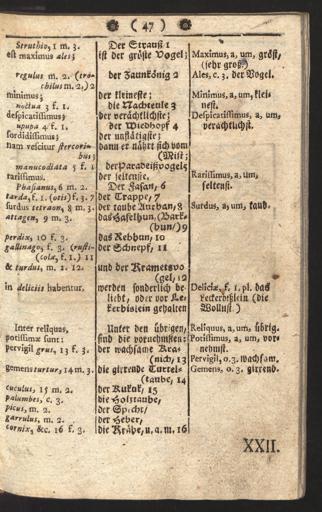 ( 47 )
Struthio, 1 m. 3.
est maximus ales;
regulus m. 2. (tro-
chilus m. 2,) 2
minimus;
noctua 3 f. 1.
despicatissimus;
upupa 4 f. 1.
sordidissimus;
nam vescitur stercori-
bus;
manucodiata 5 f. 1
rarissimus.
Phasianus, 6 m. 2.
tarda, f. 1. (otis) f. 3. 7
surdus tetraon, 8 m. 3.
attagen, 9 m. 3.
perdix, 10 f. 3.
gallinago, f. 3. (rusti-
cola, f. 1.) 11
& turdus, m. 2. 12.
in deliciis habentur.
Inter reliquas,
potissimæ sunt:
pervigil grus, 13 f. 3.
gemens turtur, 14 m. 3.
cuculus, 15 m. 2.
palumbes, c. 3.
picus, m. 2.
garrulus, m. 2.
cornix, &c. 16 f. 3.
Der Strauß 1
ist der gröste Vogel;
der Zaunkönig 2
der kleineste;
die Nachteule 3
der verächtlichste;
der Wiedhopf 4
der unflätigste;
dann er nährt sich vom
(Mist;
der Paradeißvogel 5
der seltenste.
Der Fasan, 6
der Trappe, 7
der taube Aurhan, 8
das Haselhun, (Birk-
(hun/) 9
das Rebhun, 10
der Schnepf, 11
und der Krametsvo
(gel, 12
werden sonderlich be-
liebt, oder vor Le-
ckerbislein gehalten
Unter den übrigen,
sind die vornehmsten:
der wachsame Kra-
(nich, 13
die girrende Turtel-
(taube, 14
der Kukuk, 15
die Holztaube,
der Specht/
der Heher,
die Krähe, u. a. m. 16
Maximus, a, um, gröst,
(sehr groß.)
Ales, c. 3. der Vogel.
Minimus, a, um, klei-
nest.
Despicatissimus, a, um,
verächtlichst.
Rarissimus, a, um,
seltenst.
Surdus, a, um, taub.
Deliciæ, f. 1. pl. das
Leckerbißlein (die
Wollust.)
Reliquus, a, um, übrig.
Potissimus, a, um, vor-
nehmst.
Pervigil, o. 3. wachsam.
Gemens, o. 3. girrend.
XXII.